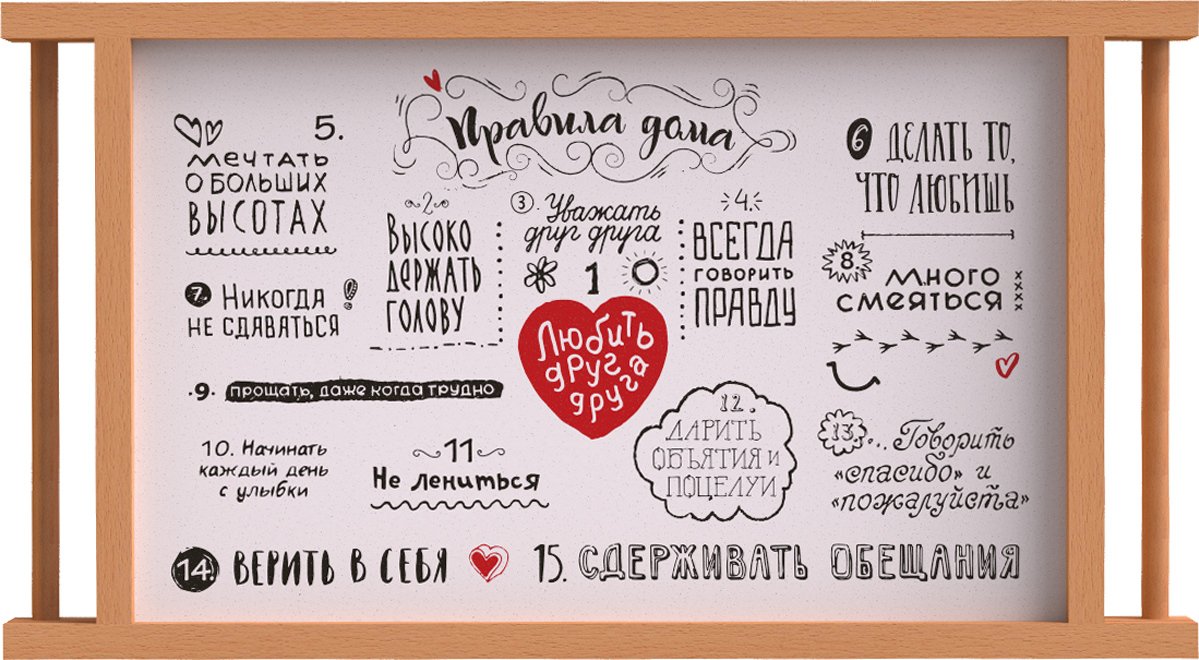 Правила дома
5.
мечтать
о больших
высотах
2
Высоко
держать
голову
3. Уважать
друг друга
4.
Всегда
говорить
правду
6 Делать то,
что любишь
7. Никогда
не сдаваться!
1
Любить
друг
друга
8.
много
смеяться
xxxx
.9. прощать, даже когда трудно
10. Начинать
каждый день
с улыбки
11
Не лениться
12.
Дарить
объятия и
поцелуи
13... Говорить
«спасибо» и
«пожалуйста»
14. Верить в себя
15. Сдерживать обещания